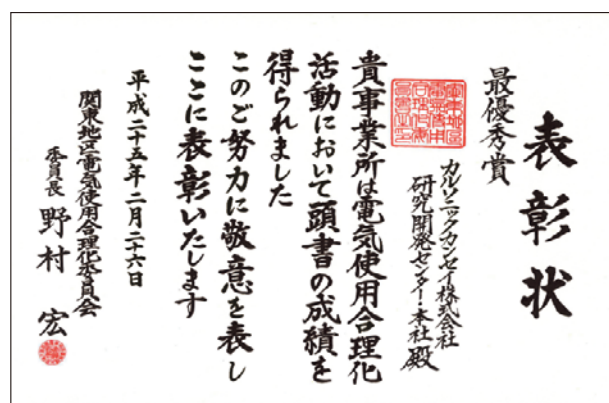 表彰状
最優秀賞
カルソニックカンセイ株式会社
研究開発センター・本社 殿
貴事業所は電気使用合理化
活動において頭書の成績を
得られました
このご努力に敬意を表し
ここに表彰いたします
平成二十五年二月二十六日
関東地区電気使用合理化委員会
委員長 野村 宏